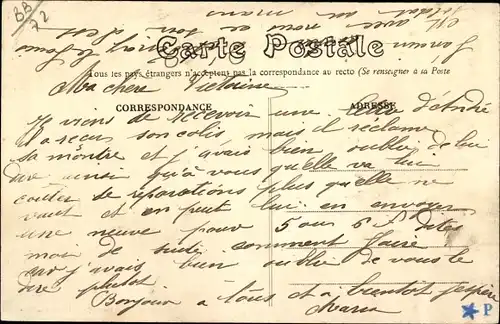 BB
72
Carte Postale
Tous les pays étrangers n'acceptent pas la correspondance au recto (Se renseigner à la Poste
CORRESPONDANCE
ADRESSE
Ma chere Victorine
Je viens de recevoir une lettre d'André
Il a recu son colis mais il reclame
sa montre et j'avais bien oublié de lui
dire ainsi qu'à vous qu'elle va lui
couter de reparations plus qu'elle ne
vaut et on peut lui en envoyer
une neuve pour 5 ou 6 f. Dites
moi de suite comment faire
car j'avais bien oublié de vous le
dire plutot
Bonjour a tous et a bientot j'espère
Maria
P